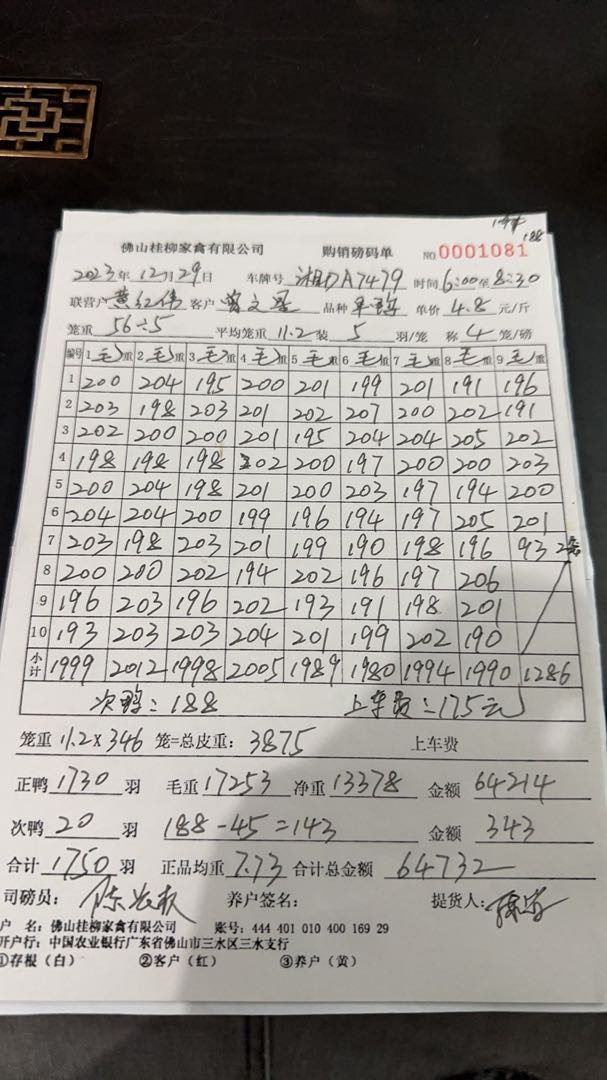 188
佛山桂柳家禽有限公司 购销磅码单 NO.0001081
2023年12月29日 车牌号 湘DA7479 时间6:00至8:30
联营户 黄红伟 客户 曾文 品种 单价 4.8 元/斤
笼重 56÷5 平均笼重 11.2 装 5 羽/笼 称 4 笼/磅
编号 1 毛重 2 毛重 3 毛重 4 毛重 5 毛重 6 毛重 7 毛重 8 毛重 9 毛重
1 200 204 195 200 201 199 201 191 196
2 203 198 203 201 202 207 200 202 191
3 202 200 200 201 195 204 204 205 202
4 198 198 198 202 200 197 200 200 203
5 200 204 198 201 200 203 197 194 200
6 204 204 200 199 196 194 197 205 201
7 203 198 203 201 199 190 198 196 93 2笼
8 200 200 202 194 202 196 197 206
9 196 203 196 202 193 191 198 201
10 193 203 203 204 201 199 202 190
小计 1999 2012 1998 2005 1989 1980 1994 1990 1286
次鸭:188 上车费:175元
笼重 11.2×346 笼=总皮重: 3875 上车费
正鸭 1730 羽 毛重 17253 净重 13378 金额 64214
次鸭 20 羽 188-45=143 金额 343
合计 1750 羽 正品均重 7.73 合计总金额 64732
司磅员: 养户签名: 提货人:
户 名:佛山桂柳家禽有限公司 账号:444 401 010 400 169 29
开户行:中国农业银行广东省佛山市三水区三水支行
①存根(白) ②客户(红) ③养户(黄)